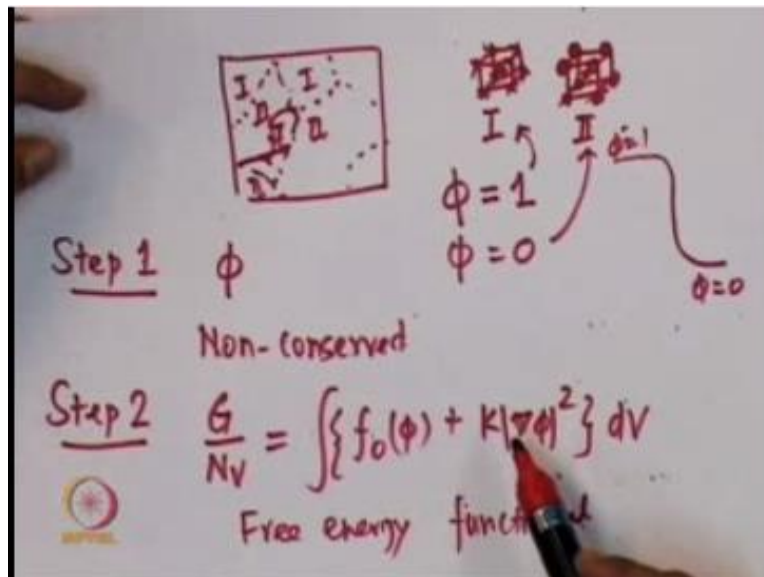 I I
II II II
II
I II
φ=1
φ = 1
φ = 0
φ=0
Step 1 φ
Non-conserved
Step 2 G/N_V = ∫{f₀(φ) + K|∇φ|²} dV
Free energy
NPTEL